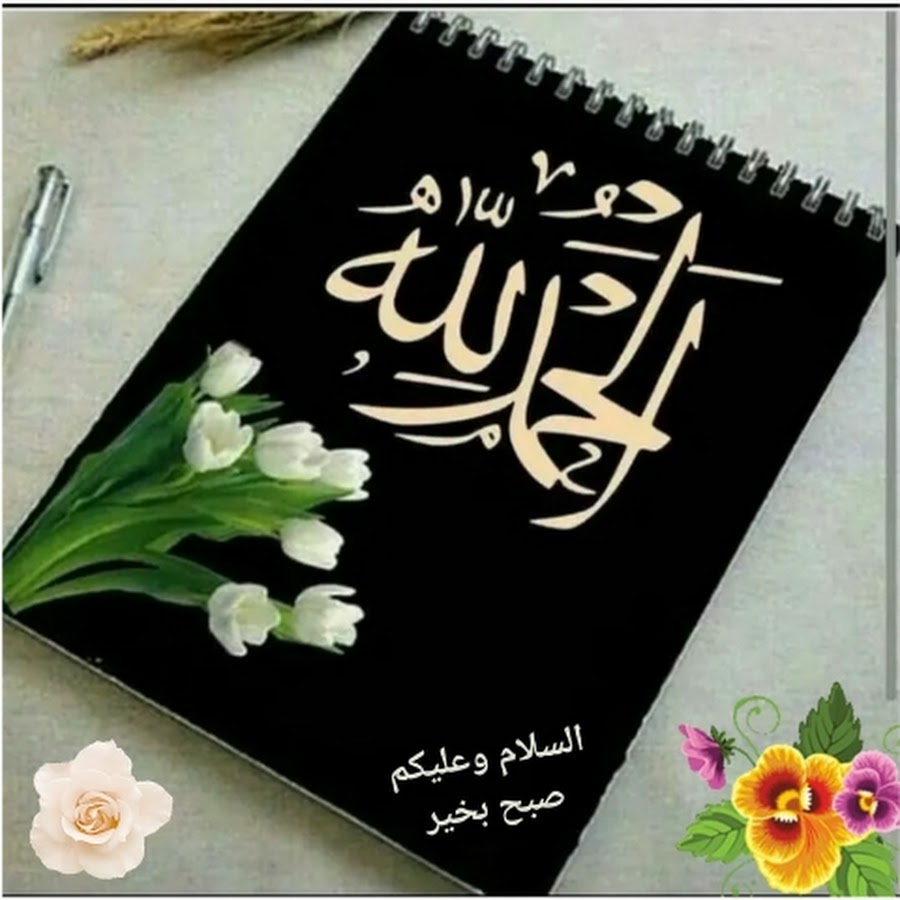 الحمد لله
السلام وعليكم
صبح بخير